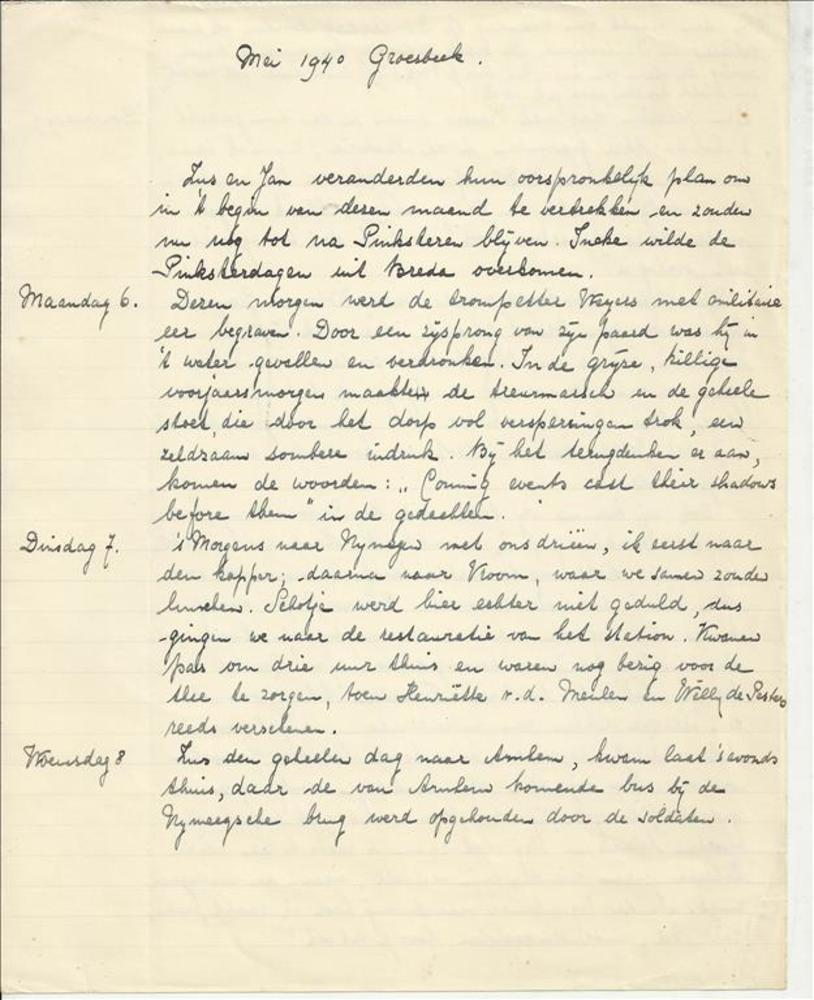 Mei 1940 Groesbeek.
Zus en Jan veranderden hun oorspronkelijk plan om
in 't begin van dezen maand te vertrekken en zouden
nu nog tot na Pinksteren blijven. Ineke wilde de
Pinksterdagen uit Breda overkomen.
Maandag 6. Dezen morgen werd de trompetter Weyers met militaire
eer begraven. Door een zijsprong van zijn paard was hij in
't water gevallen en verdronken. In de grijze, killige
voorjaarsmorgen maakten de treurmarsch en de geheele
stoet, die door het dorp vol versperringen trok, een
zeldzaam sombere indruk. Bij het terugdenken er aan,
komen de woorden: „Coming events cast their shadows
before them" in de gedachten.
Dinsdag 7. 's Morgens naar Nymegen met ons drieën, ik eerst naar
den kapper; daarna naar Vroom, waar we samen zouden
lunchen. Schotje werd hier echter niet geduld, dus
gingen we naar de restauratie van het station. Kwamen
pas om drie uur thuis en waren nog bezig voor de
thee te zorgen, toen Henriëtte v.d. Meulen en Willy de
reeds verschenen.
Woensdag 8 Zus den geheelen dag naar Arnhem, kwam laat 's avonds
thuis, daar de van Arnhem komende bus bij de
Nymeegsche brug werd opgehouden door de soldaten.